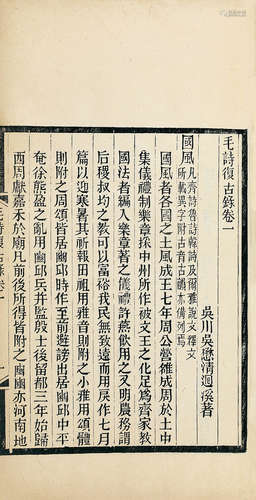 毛詩復古錄卷一
吳川吳懋清迴溪著
國風
凡齊詩魯詩韓詩及爾雅說文釋文
所載異字附古音古韻本備列焉
國風者各國之土風成王七年周公營雒成周於土中
集儀禮制樂章採中州所作被文王之化足爲齊家教
國法者編入樂章著之儀禮許燕飲用之又明農務謂
后稷叔均之教可以富裕我民無致遠而用戾作七月
篇以迎寒暑其祈報田祖用雅音則附之小雅用頌體
則附之周頌皆居豳邱時作至前避謗出居豳邱中平
奄徐熊盈之亂用豳邱兵并監殷士後留都三年始歸
西周獻嘉禾於廟凡前後所得皆附之豳豳亦河南地
毛詩復古錄